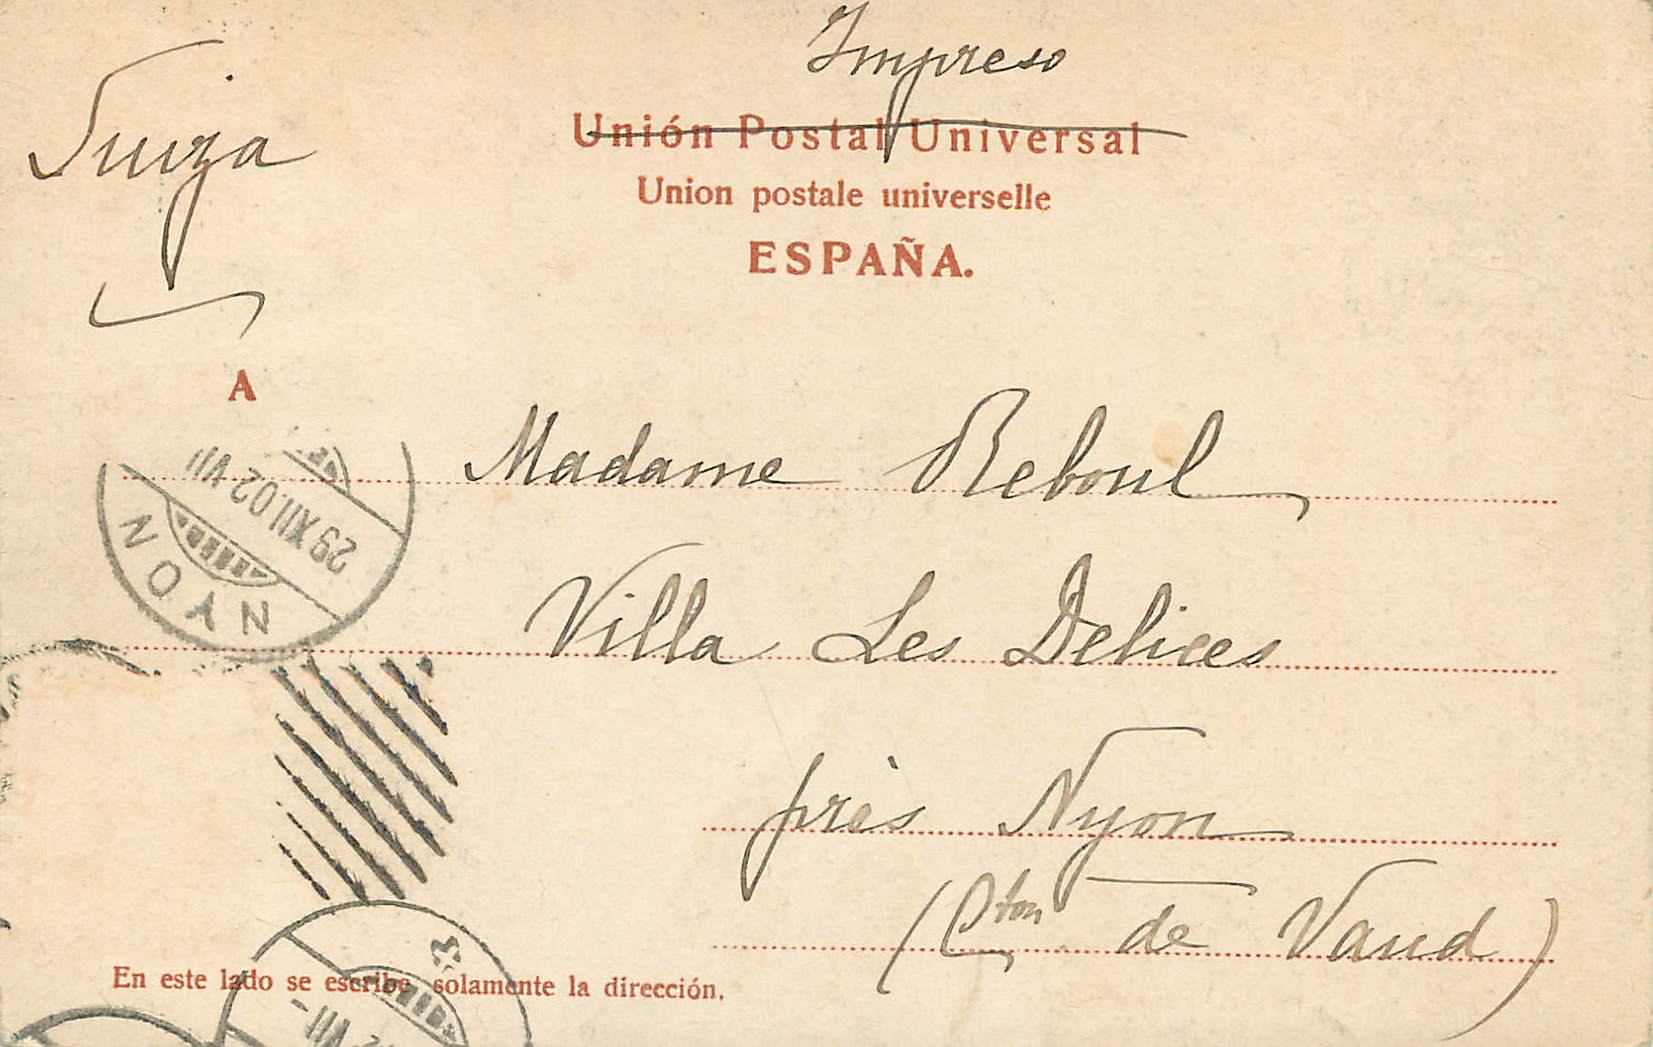 Impreso
Suiza
Unión Postal Universal
Union postale universelle
ESPAÑA.
A
Madame Reboul
Villa Les Delices
près Nyon
(Cton de Vaud)
29 XII.02 VII
NYON
En este lado se escribe solamente la dirección.